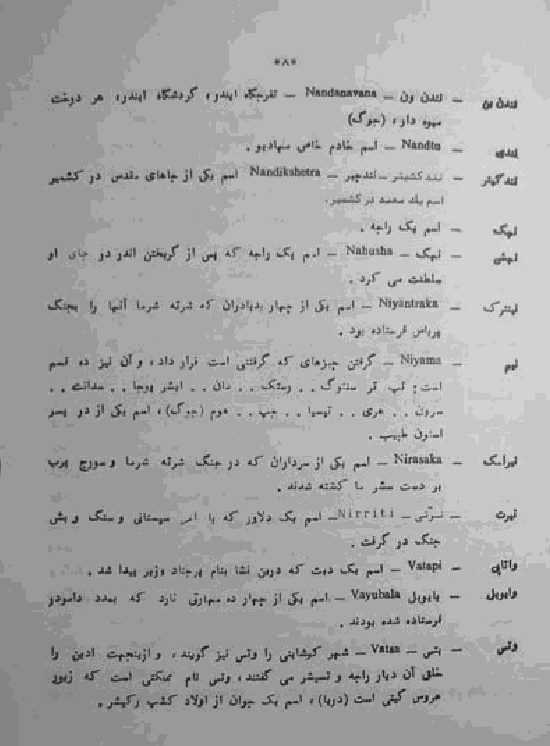 ۵۸۰
نندن ون — نندن ون — Nandanavana — تفرجگاه ایندر، گردشگاه ایندر، هر درخت
میوه دار، (جوگ)
نندی — Nandin — اسم خادم خاص مهادیو .
Nandikshetra اسم یکی از جاهای مقدس در کشمیر
اسم یک معبد در کشمیر.
نهیک — اسم یک راجه .
نهیش — نهیک — Nahusha — اسم یک راجه که پس از گریختن اندر در جای او
سلطنت می کرد .
نینترک — Niyantraka — اسم یکی از چهار بهادران که شرته شرما آنها را بجنگ
فرستاده بود .
نیم — Niyama — گرفتن چیزهای که گرفتنی است قرار داد، و آن نیز ده قسم
است: تپ
هوم (جوگ)، اسم یکی از دو پسر
طبیب .
نیراسک — Nirasaka — اسم یکی از سرداران که در جنگ شرته شرما و سورج پرب
بر دست کشته شدند .
نیرت — Nirriti — اسم یک دلاور که با
جنگ در گرفت .
واتاپی — Vatapi — اسم یک دیت که درین نشا بنام وزیر پیدا شد .
وایوبل — بایوبل Vayubala — اسم یکی از چهار ده که بمدد دامودر
فرستاده شده بودند .
وتس — بتس — Vatsa — شهر کوشانبی را وتس نیز گویند، و ازینجهت ادین را
خلق آن دیار راجه می گفتند، وتس نام مملکتی است که زیور
عروس گیتی است (دریا)، اسم یک جوان از اولاد کشپ رکیشر .